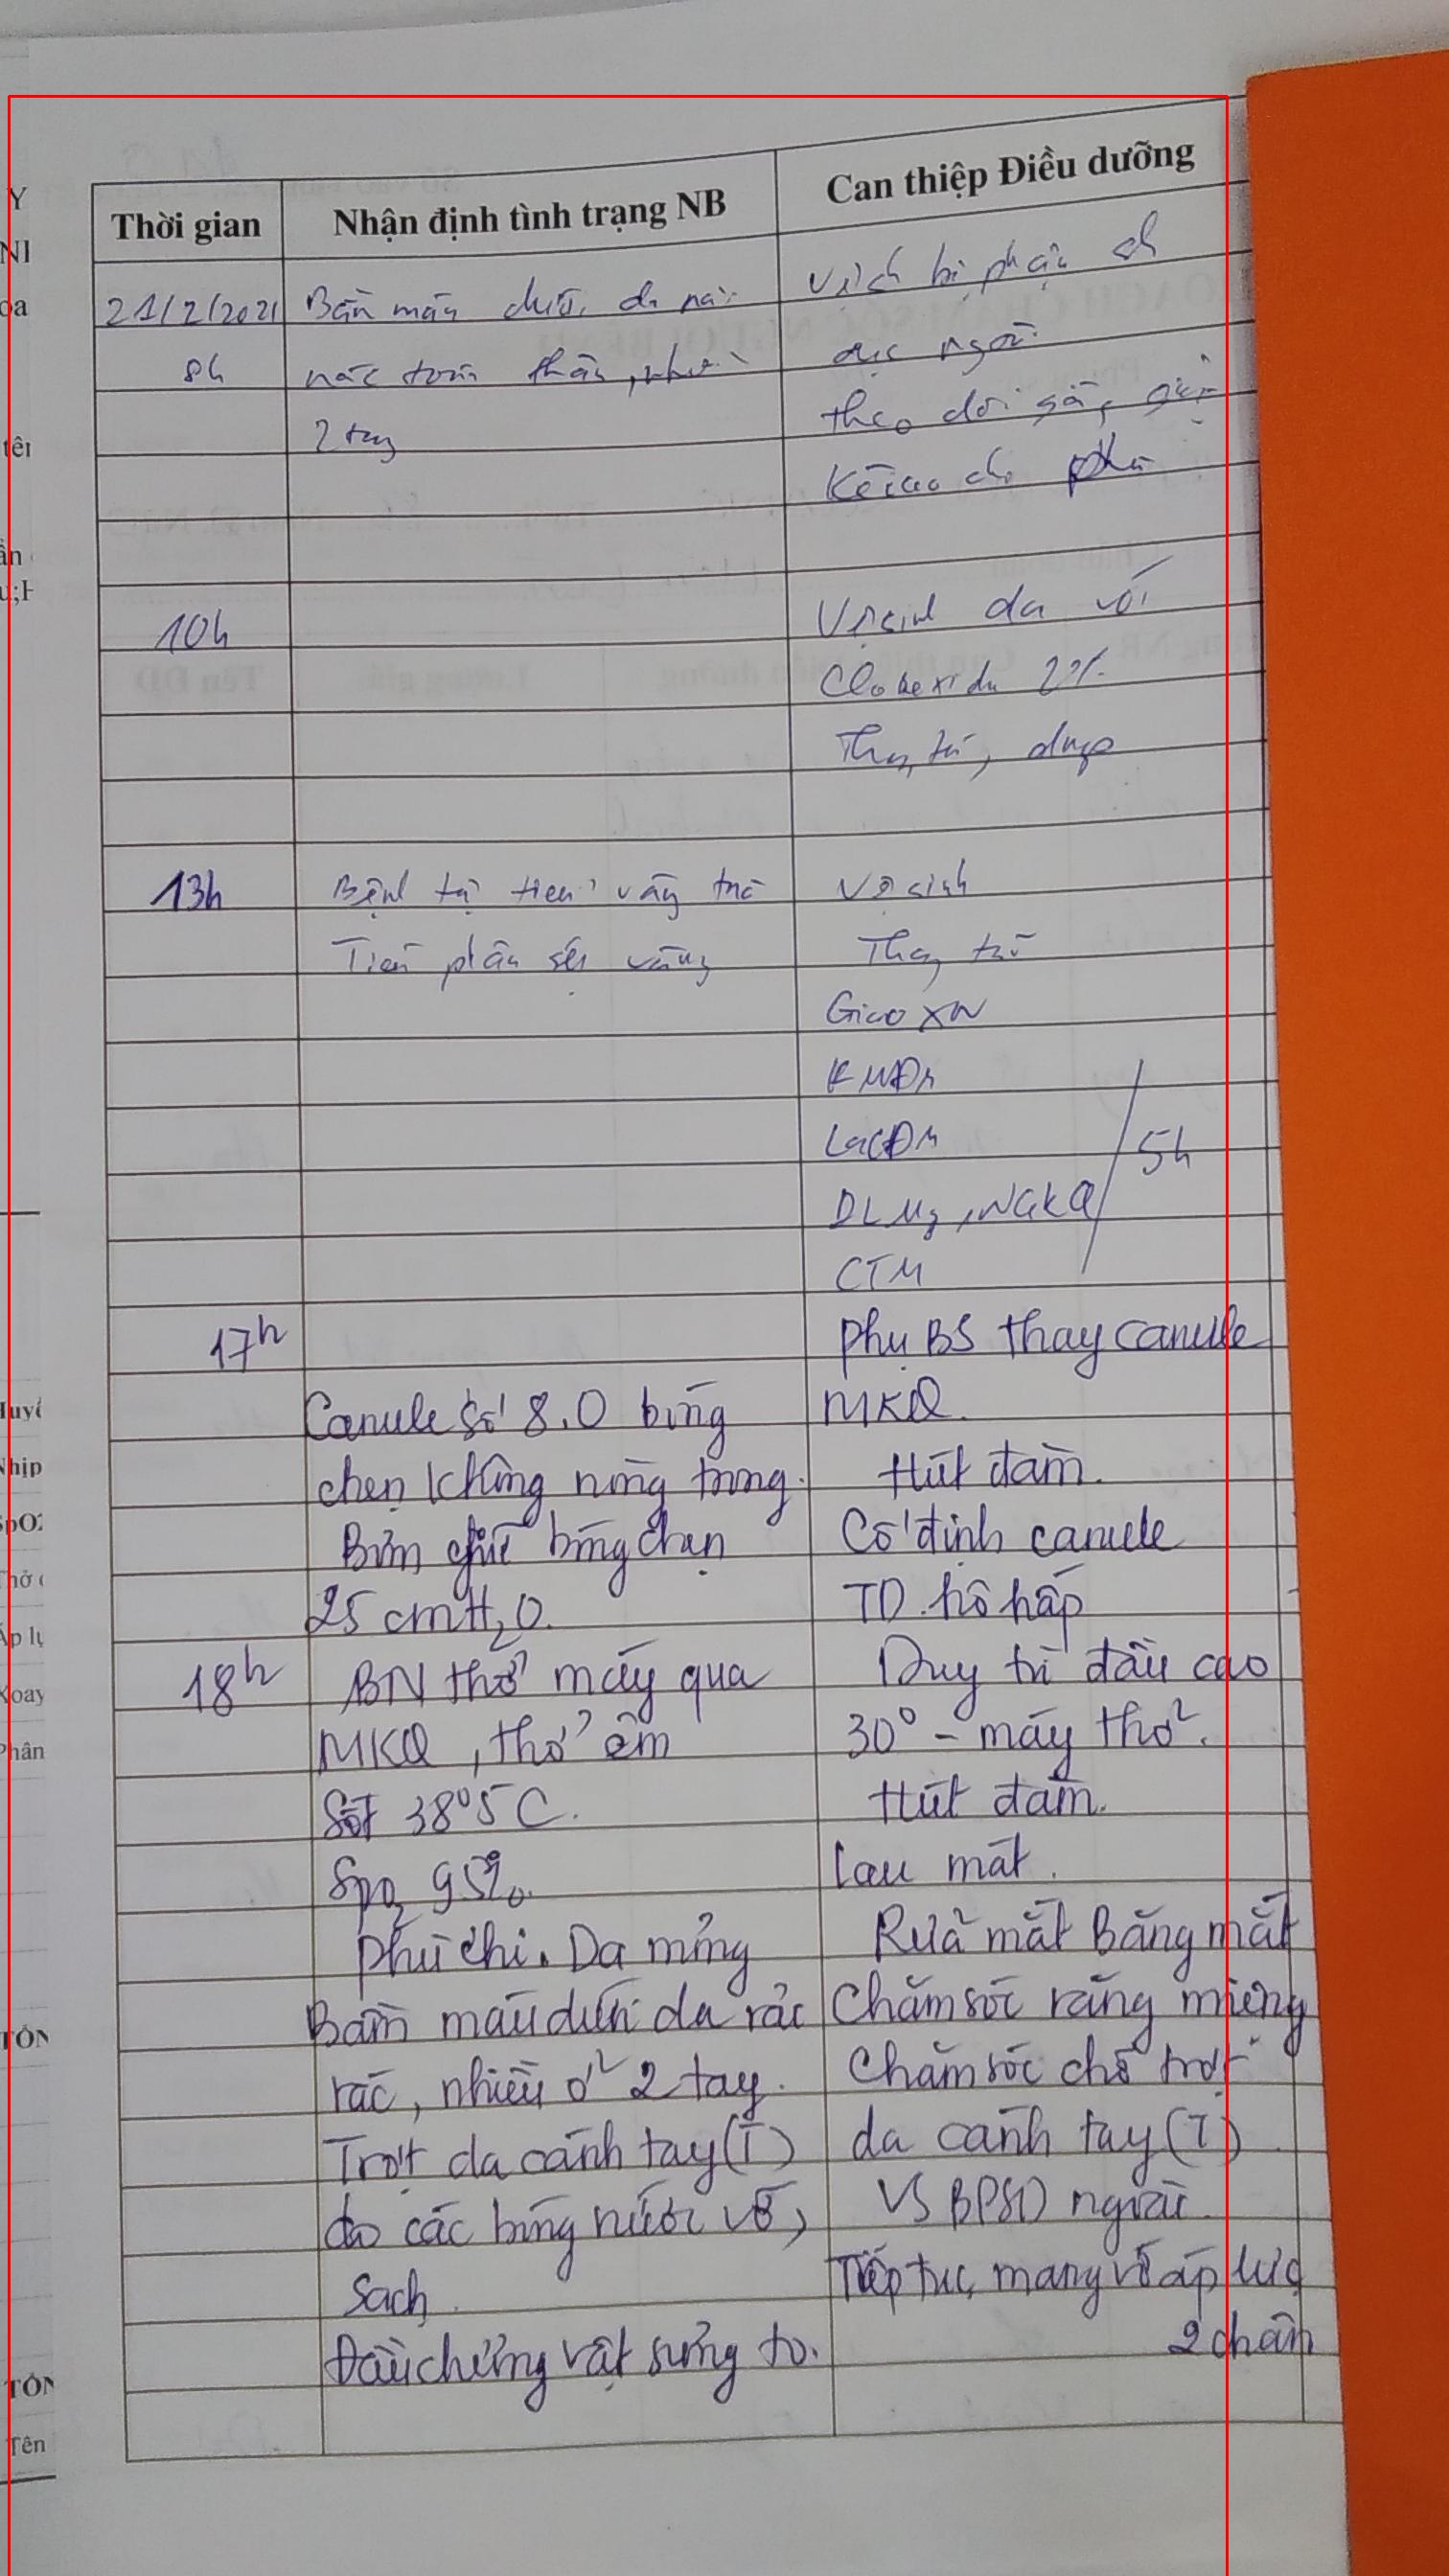 Thời gian Nhận định tình trạng NB Can thiệp Điều dưỡng
21/2/2021 Bầm máu dưới da rải Vệ sinh bộ phận sinh
8h rác toàn thân, nhiều dục ngoài
2 tay theo dõi sát,
Kê cao chi phù
10h Vệ sinh da với
Clohexidin 2%
Thay tã, drap
13h Bệnh tự tiểu vàng trà Vệ sinh
Tiêu phân sệt vàng Thay tã
Giao XN
KMĐM
LacĐM 5h
DLMg, NGKQ
CTM
17h phụ BS thay canule
Canule số 8.0 bóng MKQ.
chẹn không nòng trong. Hút đàm.
Bơm bóng chẹn Cố định canule
25 cmH2O. TD. hô hấp
18h BN thở máy qua Duy trì đầu cao
MKQ, thở êm 30° - máy thở.
Sốt 38°5 C. Hút đàm.
SpO2 95%. Lau mát.
phù chi. Da mỏng Rửa mắt Băng mắt
Bầm máu dưới da rải Chăm sóc răng miệng
rác, nhiều ở 2 tay. Chăm sóc chỗ trợt
Trợt da cánh tay (T) da cánh tay (T)
do các bóng nước vỡ, VS BPSD ngoài.
Sạch. Tiếp tục mang vớ áp lực
Đầu chứng vật sưng to. 2 chân